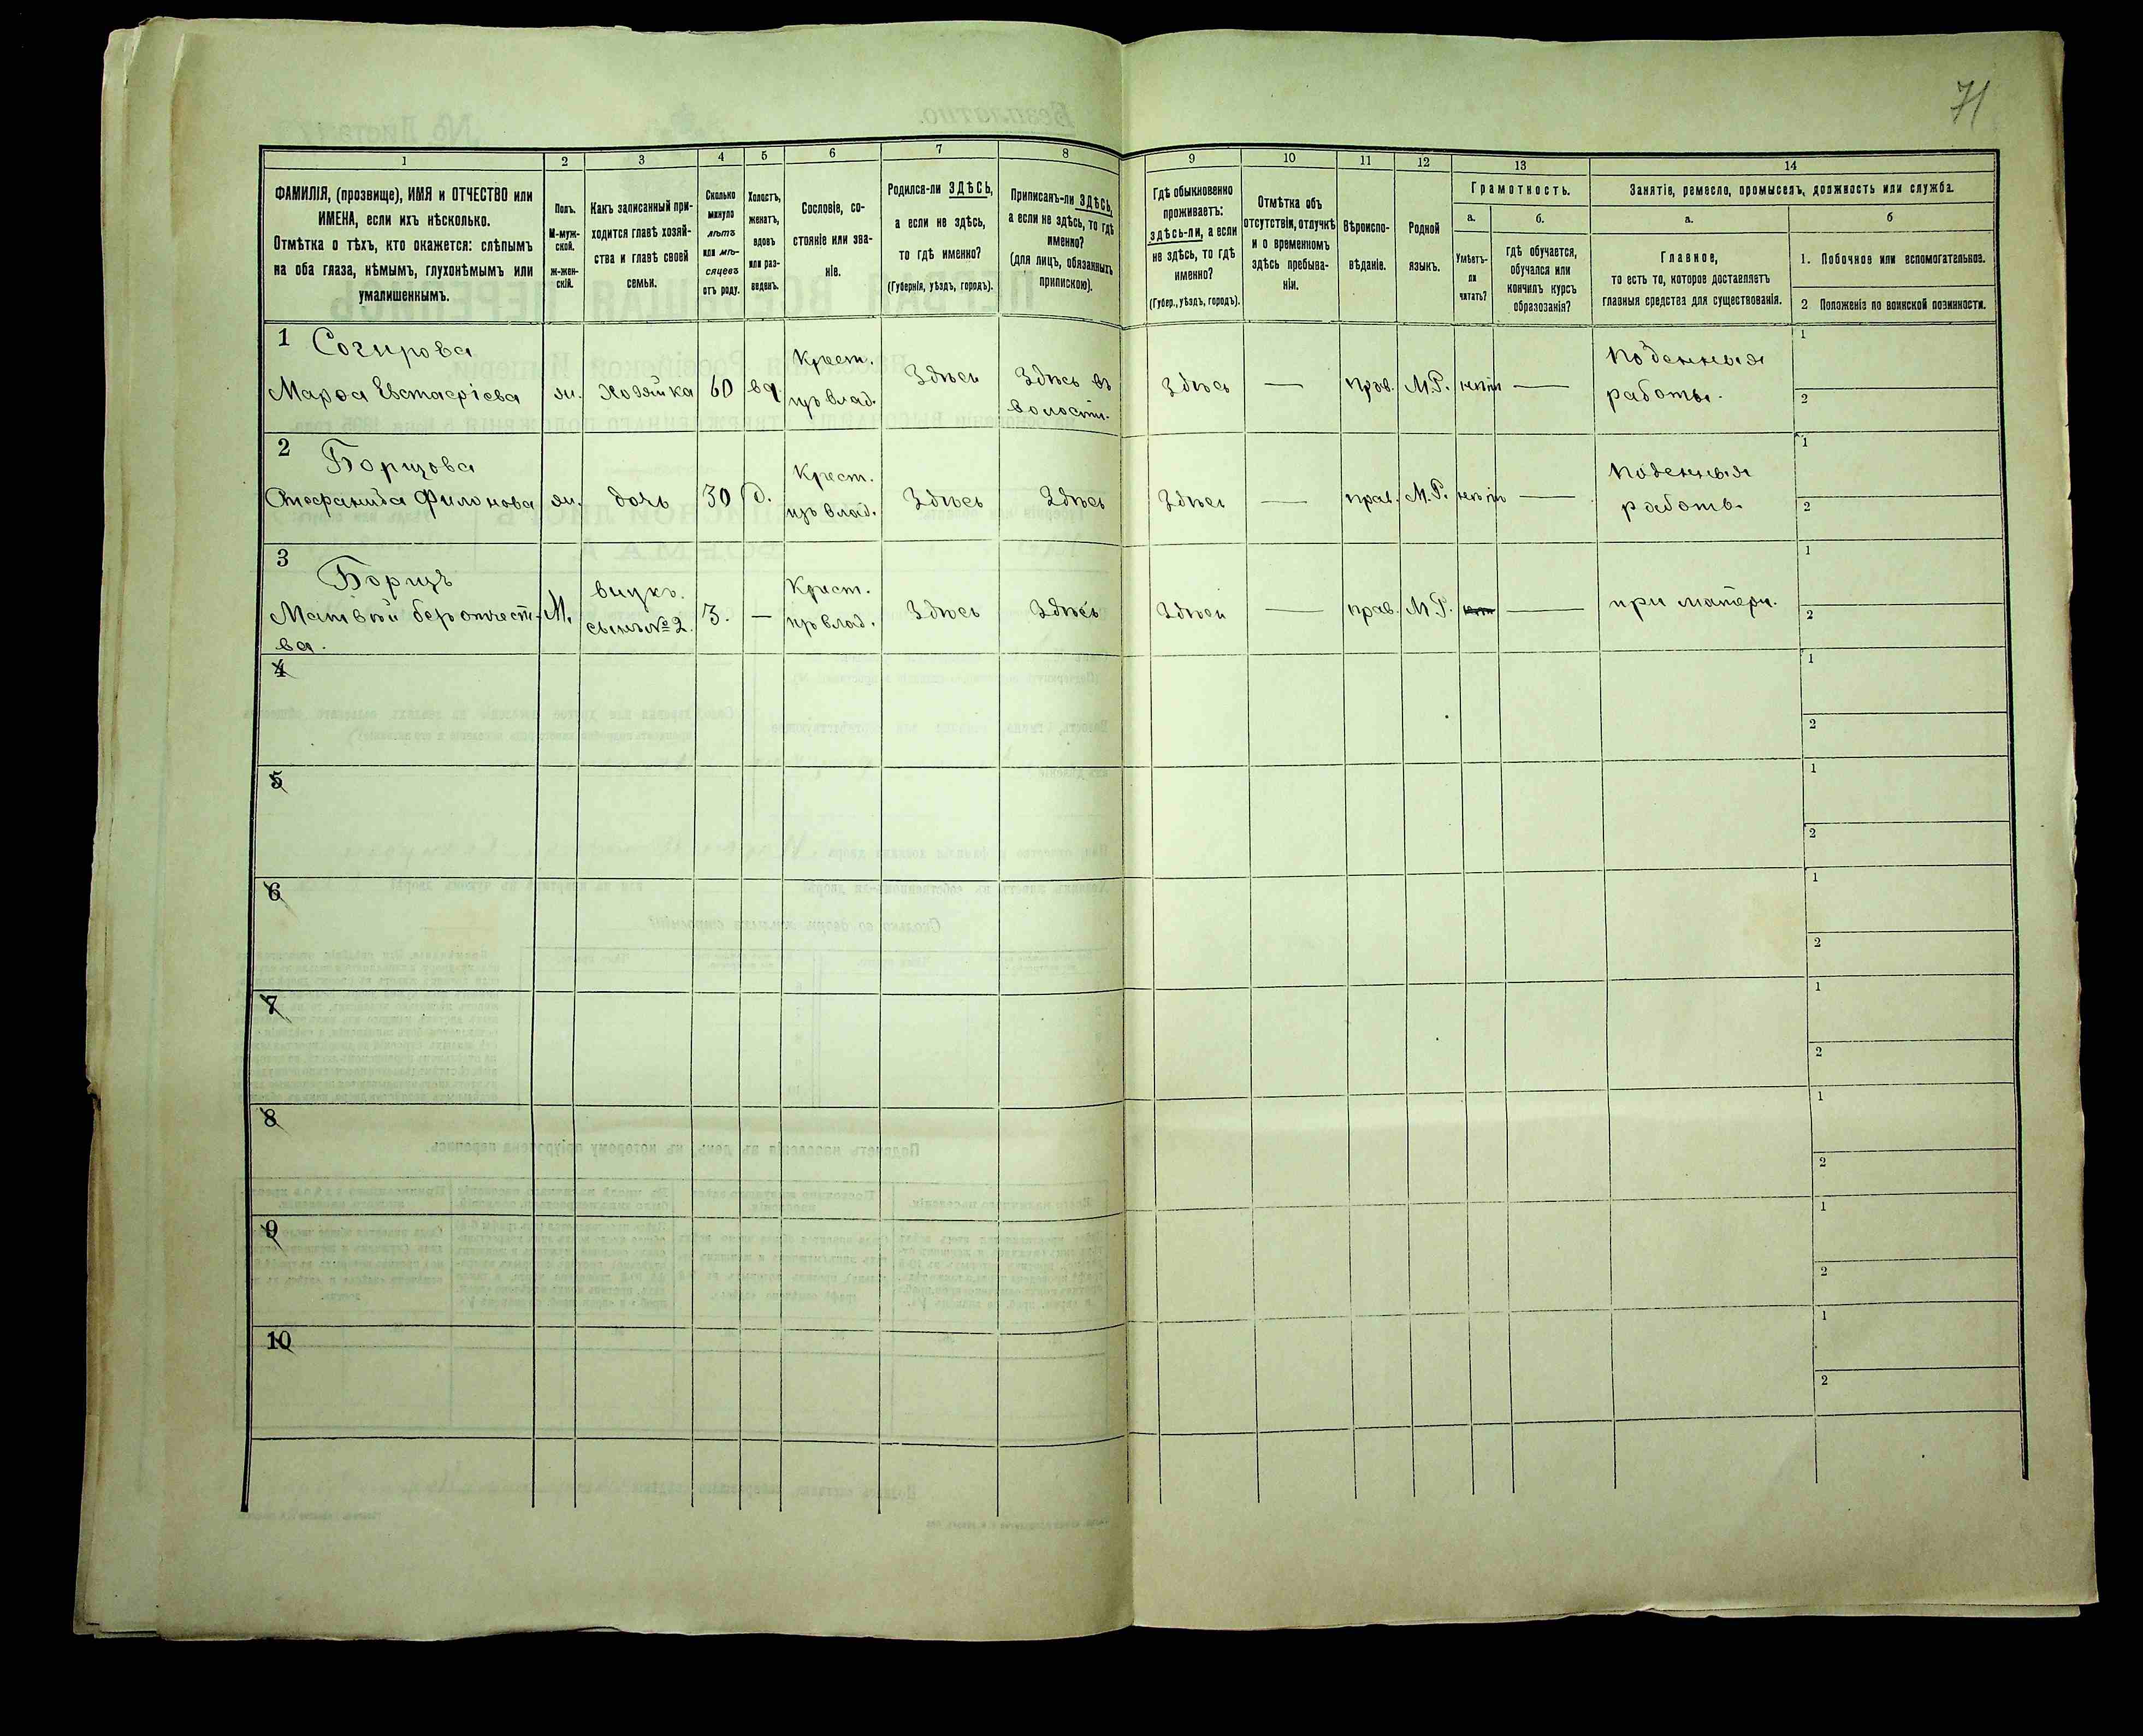 71
1 2 3 4 5 6 7 8 9 10 11 12 13 14
ФАМИЛІЯ, (прозвище), ИМЯ и ОТЧЕСТВО или
ИМЕНА, если ихъ нѣсколько.
Отмѣтка о тѣхъ, кто окажется: слѣпымъ
на оба глаза, нѣмымъ, глухонѣмымъ или
умалишеннымъ.
Полъ.
М-муж-
ской.
ж-жен-
скій.
Какъ записанный при-
ходится главѣ хозяй-
ства и главѣ своей
семьи.
Сколько
минуло
лѣтъ
или мѣ-
сяцевъ
отъ роду.
Холостъ,
женатъ,
вдовъ
или раз-
веденъ.
Сословіе, со-
стояніе или зва-
ніе.
Родился-ли ЗДѢСЬ,
а если не здѣсь,
то гдѣ именно?
(Губернія, уѣздъ, городъ).
Приписанъ-ли ЗДѢСЬ,
а если не здѣсь, то гдѣ
именно?
(для лицъ, обязанныхъ
припискою).
Гдѣ обыкновенно
проживаетъ:
здѣсь-ли, а если
не здѣсь, то гдѣ
именно?
(Губер., уѣздъ, городъ).
Отмѣтка объ
отсутствіи, отлучкѣ
и о временномъ
здѣсь пребыва-
ніи.
Вѣроиспо-
вѣданіе.
Родной
языкъ.
Грамотность.
а. б.
Умѣетъ-
ли
читать?
гдѣ обучается,
обучался или
кончилъ курсъ
образованія?
Занятіе, ремесло, промыселъ, должность или служба.
а. б
Главное,
то есть то, которое доставляетъ
главныя средства для существованія.
1. Побочное или вспомогательное.
2 Положеніе по воинской повинности.
1 Согирова
Марѳа Евстафіева
ж.
Хозяйка
60
вд.
Крест.
изъ влад.
Здѣсь
Здѣсь въ
волости.
Здѣсь
—
прав.
М.Р.
нѣтъ
—
Поденныя
работы.
1
2
2 Борцова
Стефанида Филонова
ж.
дочь
30
д.
Крест.
изъ влад.
Здѣсь
Здѣсь
Здѣсь
—
прав.
М.Р.
нѣтъ
—
Поденныя
работы.
1
2
3 Борцъ
Матвѣй безъотчест-
ва.
М.
внукъ.
сынъ №2.
3.
—
Крест.
изъ влад.
Здѣсь
Здѣсь
Здѣсь
—
прав.
М.Р.
—
при матери.
1
2
4
1
2
5
1
2
6
1
2
7
1
2
8
1
2
9
1
2
10
1
2